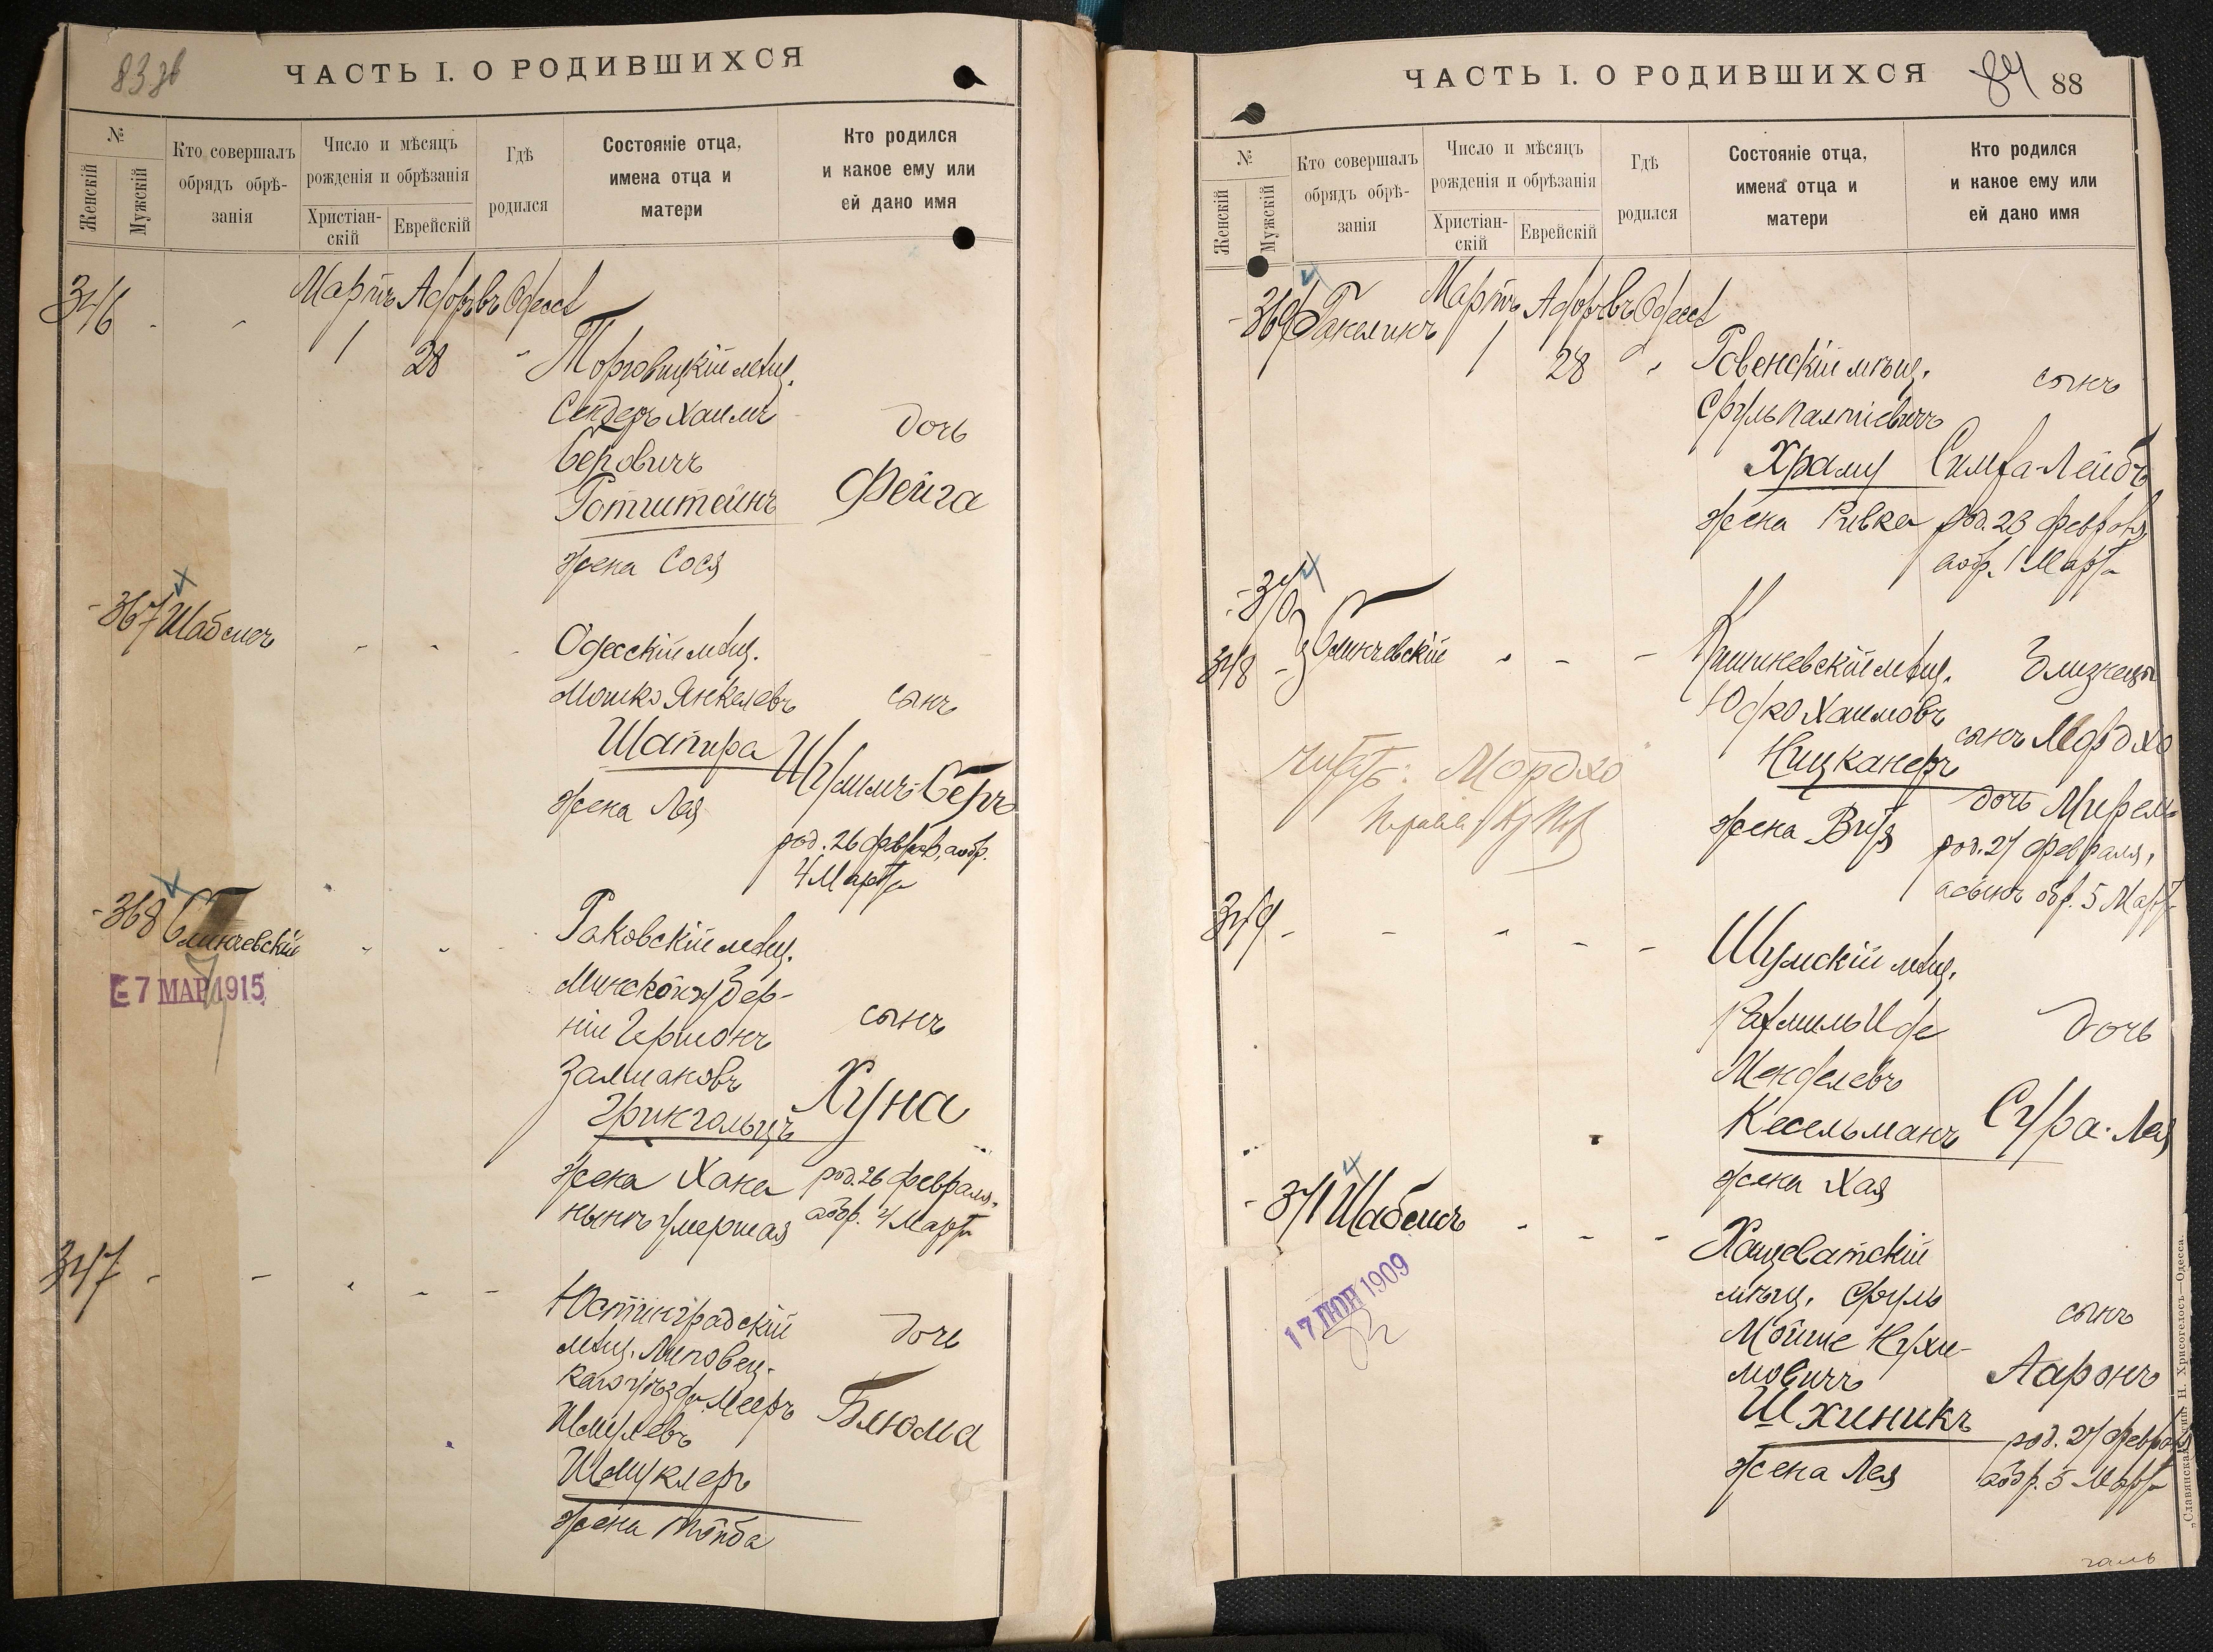 83 об
ЧАСТЬ I. О РОДИВШИХСЯ
№
Женскій
Мужскій
Кто совершалъ
обрядъ обрѣ-
занія
Число и мѣсяцъ
рожденія и обрѣзанія
Христіан-
скій
Еврейскій
Гдѣ
родился
Состояніе отца,
имена отца и
матери
Кто родился
и какое ему или
ей дано имя
346 - - Мартъ Адоръ въ Одессѣ
1 28 - Торговицкій мѣщ.
Сендеръ Хаимъ
Беровичъ
Ротштейнъ
жена Сося
дочь
Фейга
-367 Шабсисъ - - -
Одесскій мѣщ.
Мошко Янкелевъ
Шапира
жена Лея
сынъ
Шулимъ-Беръ
род. 26 февраля, а обр.
4 Марта
-368 Слинчевскій - - -
7 МАР 1915
Раковскій мѣщ.
Минской губер-
ніи Гершонъ
Залмановъ
Грингольцъ
жена Хана
нынѣ умершая
сынъ
Хуна
род. 26 февраля,
а обр. 4 Марта
347 - - - - -
Юстинградскій
мѣщ. Липовец-
каго уѣзда Мееръ
Шмулевъ
Шмуклеръ
жена Тойба
дочь
Блюма
84 88
ЧАСТЬ I. О РОДИВШИХСЯ
№
Женскій
Мужскій
Кто совершалъ
обрядъ обрѣ-
занія
Число и мѣсяцъ
рожденія и обрѣзанія
Христіан-
скій
Еврейскій
Гдѣ
родился
Состояніе отца,
имена отца и
матери
Кто родился
и какое ему или
ей дано имя
-369 Гакелинъ Мартъ Адоръ въ Одессѣ
1 28 - Ровенскій мѣщ.
Сруль Палтіевичъ
Храмц
жена Ривка
сынъ
Симха-Лейбъ
род. 23 февраля,
а обр. 1 Марта
-370
348 - Слинчевскій - - -
Кишиневскій мѣщ.
Юдко Хаимовъ
Ницканеръ
жена
Близнецы
сынъ Мордхо
дочь Мирель
род. 27 февраля,
а сынъ обр. 5 Марта
читать: Мордхо
349 - - - - -
Шумскій мѣщ.
Рахмиль Иде
Менделевъ
Кесельманъ
жена Хая
дочь
Сура-Лея
-371 Шабсисъ - - -
17 ІЮН 1909
Хащеватскій
мѣщ. Сруль
Мойше Нухи-
мовичъ
Шхиникъ
жена Лея
сынъ
Ааронъ
род. 27 февраля
а обр. 5 Марта
„Славянская“ тип. Н. Хрисогелосъ—Одесса.